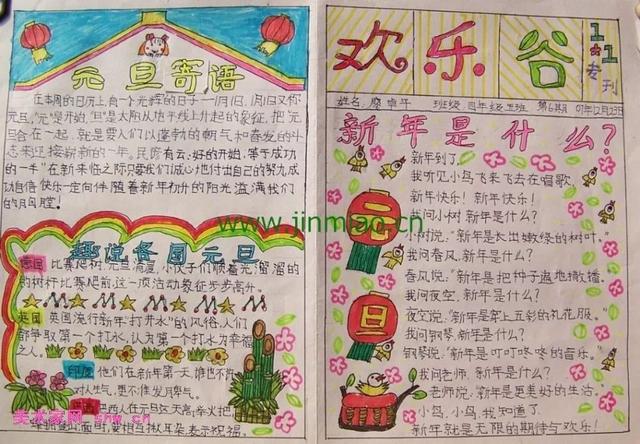 元旦寄语
在本周的日历上,有一个光辉的日子—1月1日,1月1日又称
元旦,“元”是开始,但“旦”是太阳从地平线上升起的象征,把“元
旦合在一起,就是要人们以蓬勃的朝气和奋发的斗
志来迎接崭新的一年。民谚有云:好的开始,等于成功
的一半”在新来临之际只要我们诚心地付出自己的努力,成
功自信快乐一定向伴随着新年初升的阳光溢满我们
趣说各国元旦
德国
比赛爬树:元旦清晨,小伙子们顺着光溜溜的
的树杆比赛爬前,这一项活动象征步步高升。
英国
英国流行新年“打井水”的风俗,人们
都争取第一个打水,认为第一个打水为幸福
之人。
印度
他们在新年第一天,谁也不许
对人生气,更不准发脾气。
表示祝福。
美术家网
欢乐谷
1·1
专刊
姓名:
班级:四年级 班 第6期 07年12月23日
新年是什么?
新年到了,
我听见小鸟飞来飞去在唱歌,
新年快乐!新年快乐!
我问小树,新年是什么?
小树说:“新年是长出嫩绿的树叶。”
我问春风,新年是什么?
春风说:“新年是把种子遍地撒播。
我问夜空,新年是什么?
夜空说:“新年是穿上五彩的礼花服。
我问钢琴,新年是什么?
钢琴说:“新年是叮叮咚咚的音乐。”
我问老师,新年是什么?
老师说:“新年是更美好的生活。
小鸟,小鸟,我知道了,
新年就是无限的期待与欢欣!
元
旦
www.jinmiao.cn